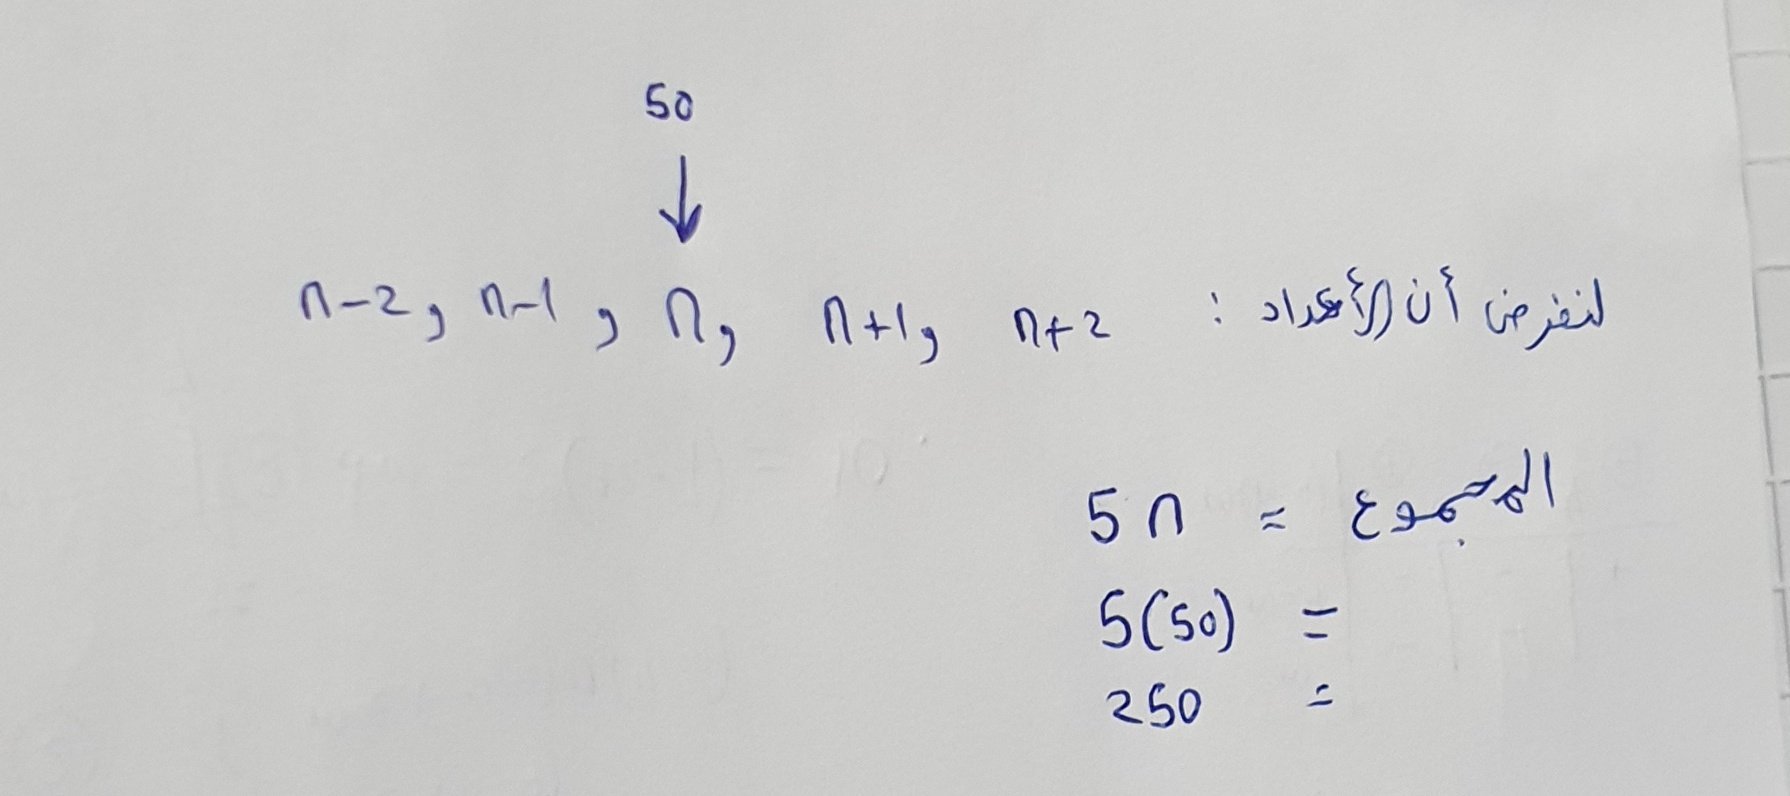 50
↓
لنفرض أن الأعداد : n-2, n-1, n, n+1, n+2
المجموع = 5n
= 5(50)
= 250